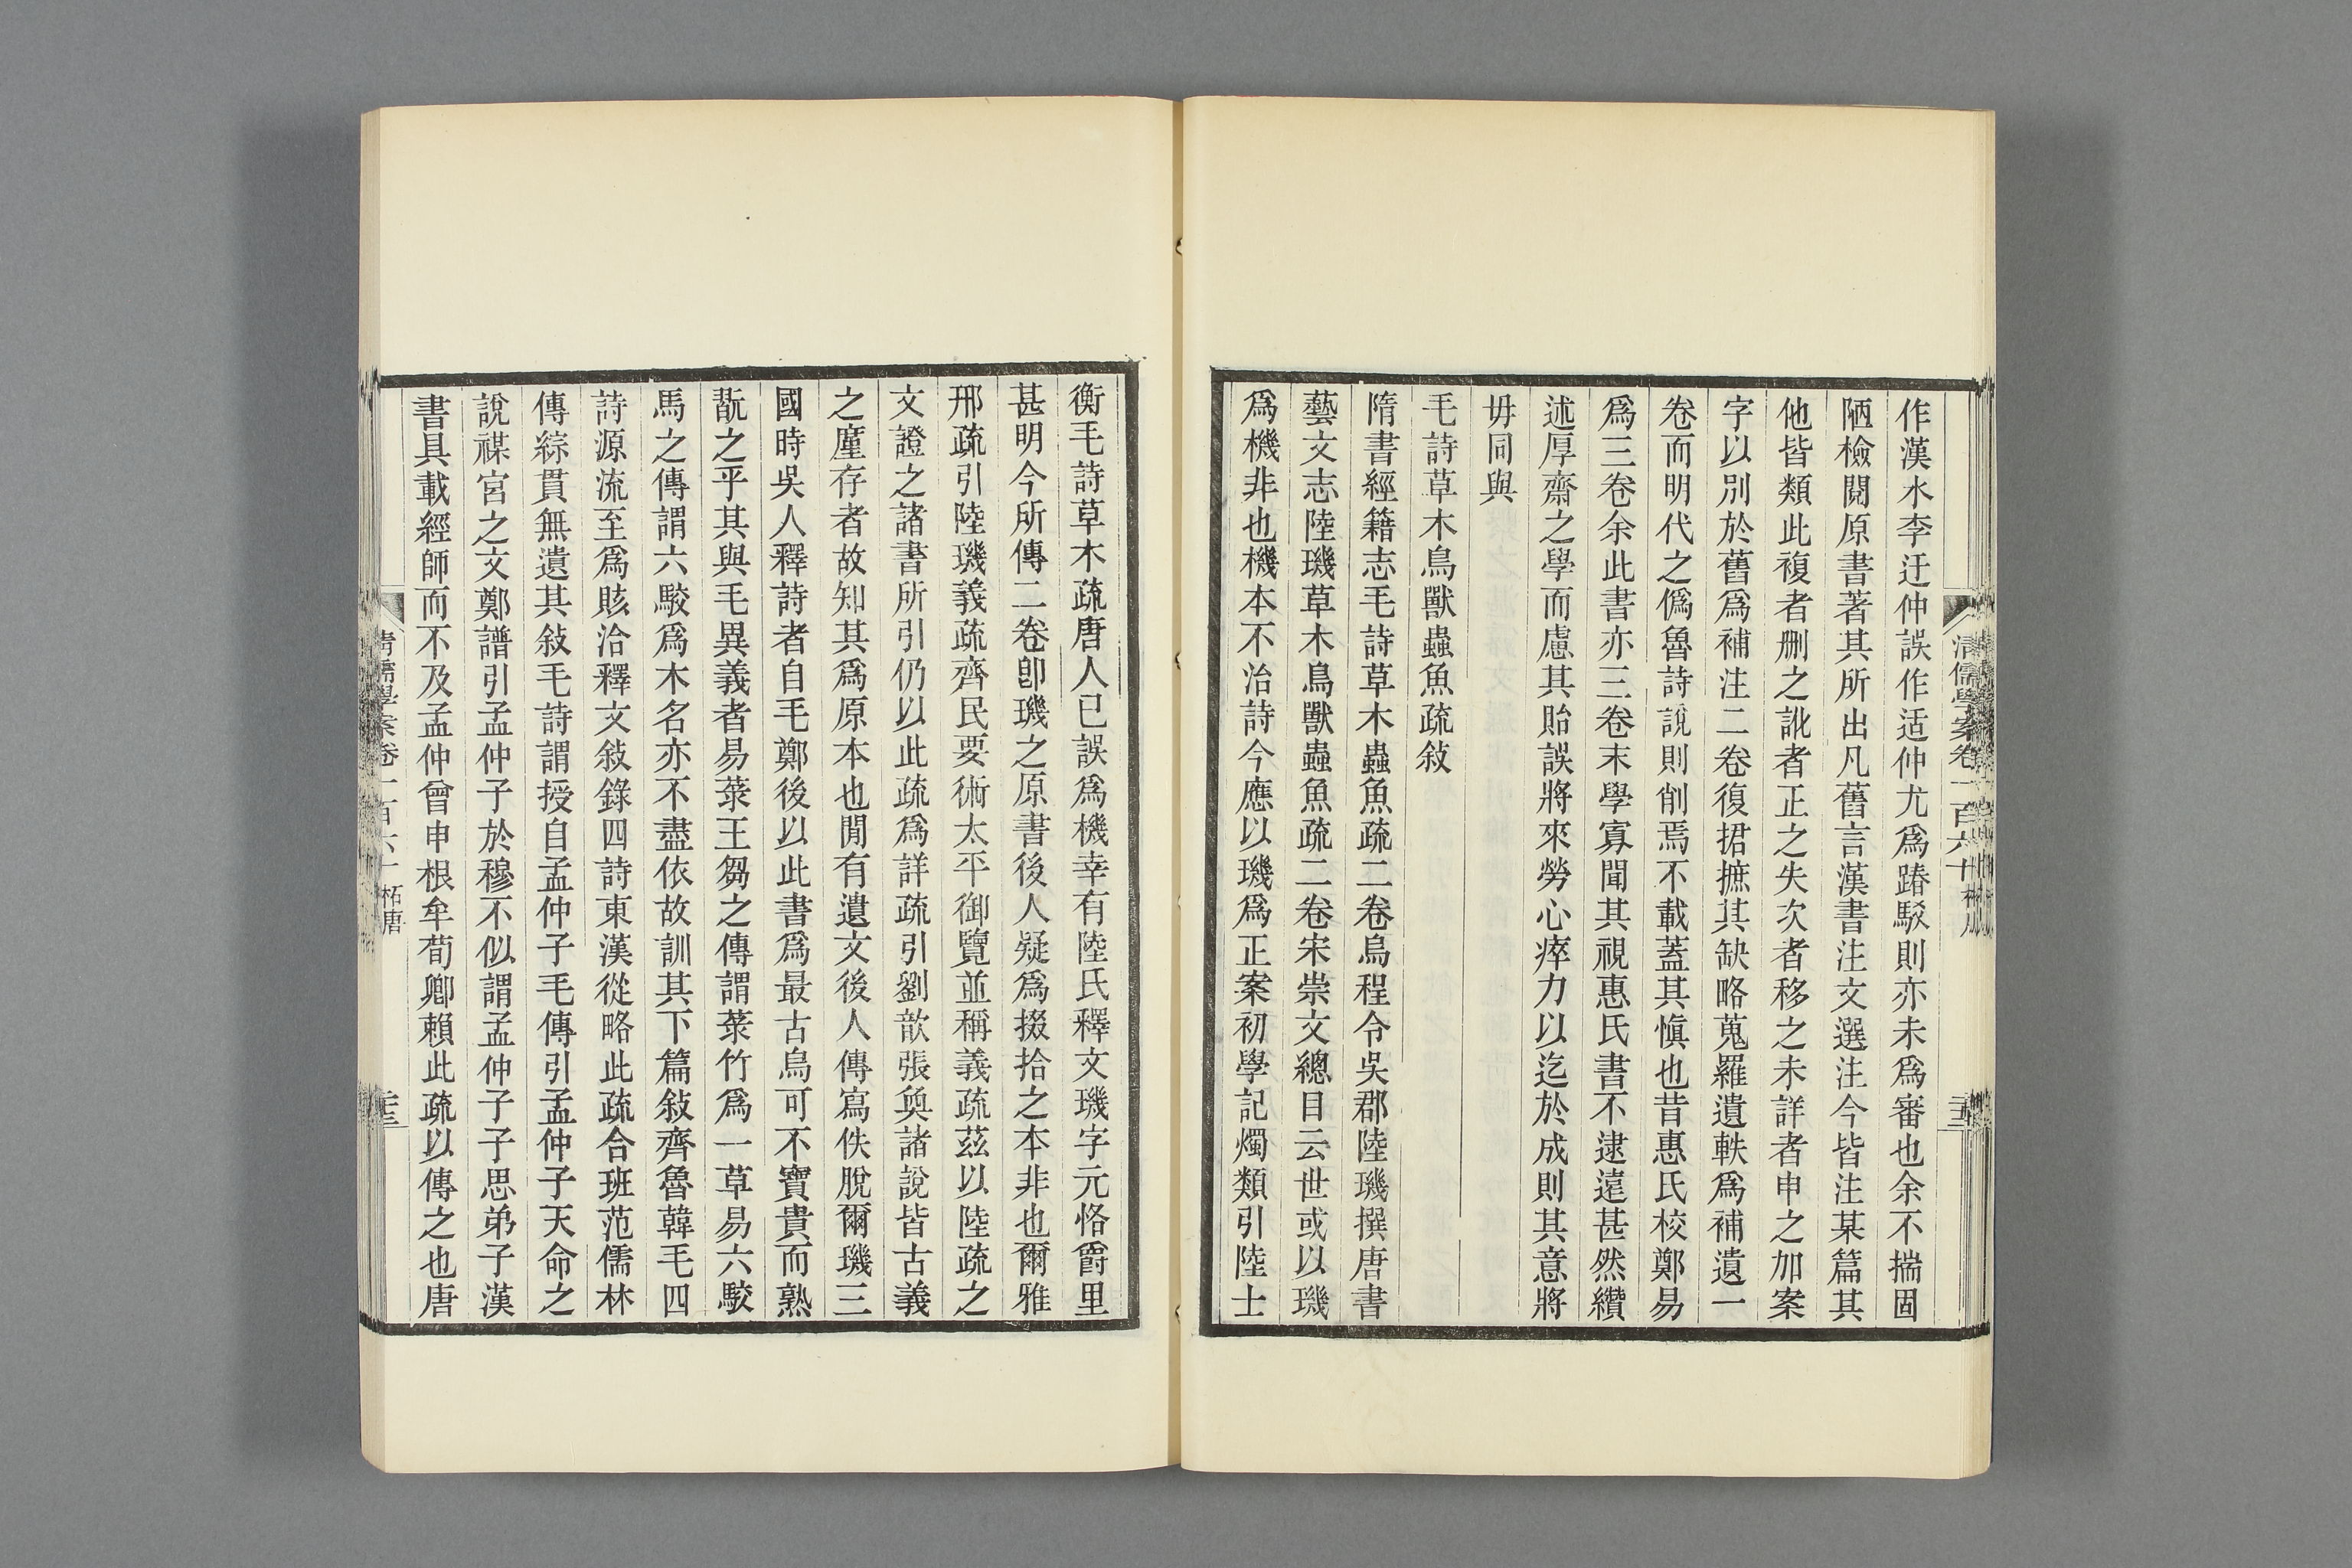 作漢水李迂仲誤作适仲尤爲踳駁則亦未爲審也余不揣固
陋檢閱原書著其所出凡舊言漢書注文選注今皆注某篇其
他皆類此複者刪之訛者正之失次者移之未詳者申之加案
字以別於舊爲補注二卷復捃摭其缺略蒐羅遺軼爲補遺一
卷而明代之僞魯詩說則削焉不載蓋其愼也昔惠氏校鄭易
爲三卷余此書亦三卷末學寡聞其視惠氏書不逮遠甚然纘
述厚齋之學而慮其貽誤將來勞心瘁力以迄於成則其意將
毋同與
毛詩草木鳥獸蟲魚疏敍
隋書經籍志毛詩草木蟲魚疏二卷烏程令吳郡陸璣撰唐書
藝文志陸璣草木鳥獸蟲魚疏二卷宋崇文總目云世或以璣
爲機非也機本不治詩今應以璣爲正案初學記燭類引陸士
衡毛詩草木疏唐人已誤爲機幸有陸氏釋文璣字元恪爵里
甚明今所傳二卷卽璣之原書後人疑爲掇拾之本非也爾雅
邢疏引陸璣義疏齊民要術太平御覽並稱義疏茲以陸疏之
文證之諸書所引仍以此疏爲詳疏引劉歆張奐諸說皆古義
之廑存者故知其爲原本也閒有遺文後人傳寫佚脫爾璣三
國時吳人釋詩者自毛鄭後以此書爲最古烏可不寶貴而熟
翫之乎其與毛異義者易菉王芻之傳謂菉竹爲一草易六駮
馬之傳謂六駮爲木名亦不盡依故訓其下篇敍齊魯韓毛四
詩源流至爲賅洽釋文敍錄四詩東漢從略此疏合班范儒林
傳綜貫無遺其敍毛詩謂授自孟仲子毛傳引孟仲子天命之
說禖宮之文鄭譜引孟仲子於穆不似謂孟仲子子思弟子漢
書具載經師而不及孟仲曾申根牟荀卿賴此疏以傳之也唐
清儒學案卷一百六十